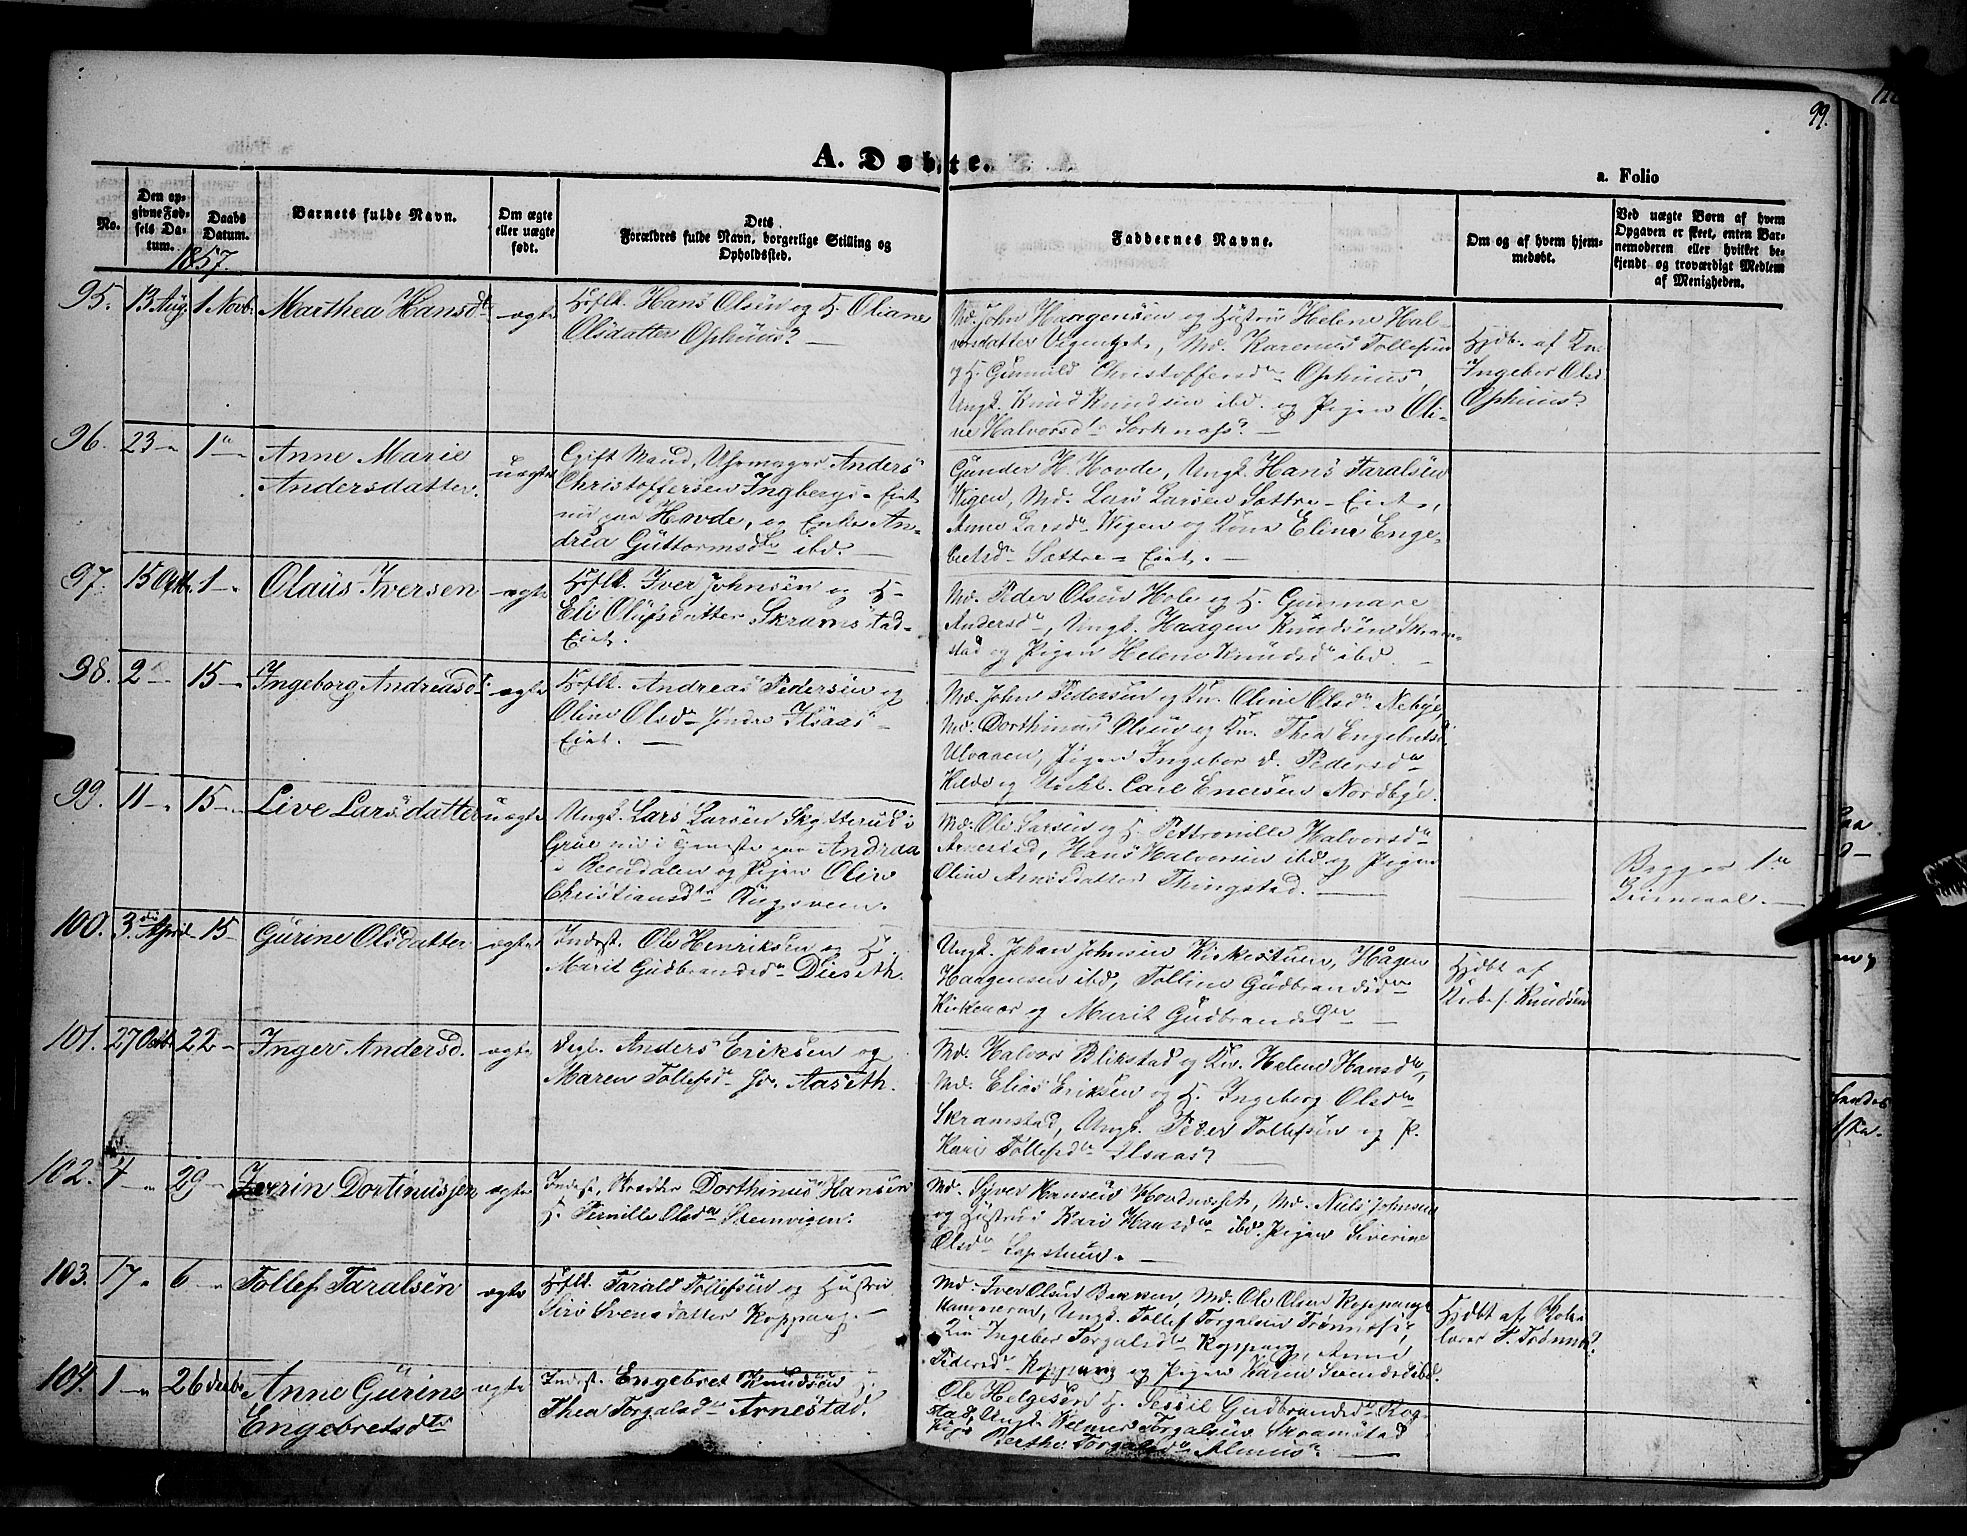 99.
A. Døbte.
a. Folio
No.
Den op-
givne Fød-
sels Da-
tum.
Daabs
Datum.
Barnets fulde Navn.
Om ægte
eller uægte
født.
Dets
Forældres fulde Navn, borgerlige Stilling og
Opholdssted.
Faddernes Navne.
Om og af hvem hjem-
medøbt.
Ved uægte Børn af hvem
Opgaven er skeet, enten Bar-
nemoderen eller hvilket be-
kjendt og troværdigt Medlem
af Menigheden.
1857.
95. 13 Aug. 1 Novb. Marthea Hansdt. ægte
Hans Olsen og H. Oliane
Olsdatter Ophuus.
Md. John Haagensen og Hustru Helene Hal-
vorsdatter, Md. Karenus Tollefsen
og H. Gunnild Christoffersdr Ophuus,
Ungk. Knud Knudsen ibd. og Pigen Oli-
ne Halvorsd. Sorknæss.
Hjdbt. af
Ingebor Olsd.
Ophuus.
96. 23 1 Anne Marie
Andersdatter. uægte
Gift Mand, Uhrmager Anders
Christoffersen Ingbergs-Eiet
nu paa Hovde, og Enke An-
drea Guttormsdtr ibd.
Gunder H. Hovde, Ungk. Hans Taralsen
Wigen, Md. Lars Larsen Sættre-Eiet,
Anne Larsdr Wigen og Kone Eline Enge-
bretsdr Sættre-Eiet.
97. 15 Octb. 1 Olaus Iversen ægte
Iver Johnsen og H.
Eli Olufsdatter Skramstad-
Eiet.
Md. Peder Olsen Hole og H. Gunnare
Andersdr, Ungk. Haagen Knudsen Skram-
stad og Pigen Helene Knudsdr ibd.
98. 2 15 Ingeborg Andreasdr. ægte
Andreas Pedersen og
Oline Olsdr Ilsaas-
Eiet.
Md. John Pedersen og Kv. Oline Olsdr Nebye,
Md. Dorthinus Olsen og Kv. Thea Engebretsd.
Ulvaaen, Pigen Ingebor d. Pedersdr
og Carl Enersen Nordbye.
99. 11 15 Live Larsdatter uægte
Ungk. Lars Larsen
Grue nu i Tjeneste paa Andraa
i Rendalen og Pigen Oline
Christiansdr Rugsveen.
Md. Ole Larsen og H. Pettronille Halvorsdr
Arnestad, Hans Halversen ibd. og Pigen
Oline Arnesdatter Thingstad.
Begges 1ste
100. 3die April 15 Gurine Olsdatter ægte
Inderst. Ole Henriksen og H.
Marit Gudbrandsdr Dieseth.
Ungk. Johan Johnsen Kirkestuen, Hagen
Haagensen ibd, Polline Gudbrandsdr
og Marit Gudbrandsdr
Hjdbt af
Kirkes. Knudsen
101. 27 Octb. 22 Inger Andersd. ægte
Anders Eriksen og
Maren Tollefsdr Aaseth.
Md. Halvor Blikstad og Kv. Helene Hansdr,
Md. Elias Eriksen og H. Ingeborg Olsdr
Skramstad, Ungk. Peder Tollefsen og P.
Kari Tollefsdr Ilsaas
102. 4 29 Iverin Dortinussen ægte
Inderst, Skrædder Dorthinus Hansen
H. Pernille Olsdr Steenvigen.
Md. Syver Hansen, Md. Niels Johnsen
og Hustru Kari Hansdr ibd. Pigen Siverine
Olsdr
103. 17 6 Tollef Taralsen ægte
Tarald Tollefsen og Hustru
Siri Svensdatter Koppang.
Md. Iver Olsen Bakken, Md. Ole Olsen Koppang
Ungk. Tollef Torgalsen Trønnæss,
Ingebor Torgalsdr Koppang, Anne
Pedersdr Koppang og Pigen Karen Svendsd ibd.
Hjdbt af Kobo-
lærer P. Trønnæs
104. 1 26 Decbr. Anne Gurine
Engebretsdtr ægte
Inderst. Engebret Knudsen H.
Thea Torgalsdr Arnestad.
Ole Helgesen H. Sessil Gudbrandsdr Rog-
stad, Ungk. Helmer Torgalsen Skramstad
Pige Berthe Torgalsdr